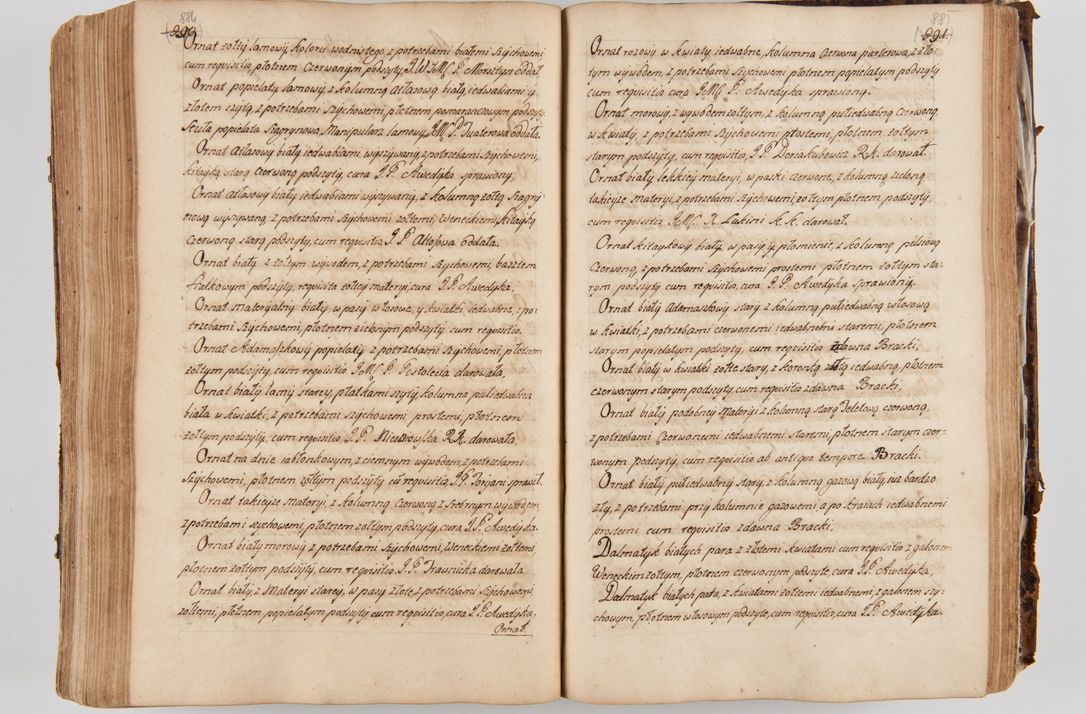 886
Ornat zołty lamowy koloru wodnistego, z potrzebami białemi szychowemi
cum requisitis, płotnem czerwonym podszyty, J. W. J. Mć P. Morsztyn oddał.
Ornat popielaty lamowy, z kolumną atłasową białą, iedwabiami y
złotem szytą, z potrzebami szychowemi, płotnem pomaranczowym podszyty,
Stuła popielata szagrynowa, Manipularz lamowy, J. Mć P. oddała.
Ornat Atłasowy biały iedwabiami, wyszywany, z potrzebami szychowemi,
kitayką starą czerwoną podszyty, cura J. P. Awedyka sprawiony,
Ornat Atłasowy biały iedwabiami wyszywany, z kolumną zołtą szagry-
nową wyszywaną, z potrzebami szychowemi zołtemi, Weneckiemi, kitayką
czerwoną starą podszyty, cum requisitis, J. P. oddała.
Ornat biały z zołtym wywodem, z potrzebami szychowemi, baształem
fiałkowym podszyty, requisita zołtey materyi, cura J. P. Awedyka,
Ornat materyalny biały w pasy włosowe, y kwiatki iedwabne, z po-
trzebami szychowemi, płotnem zielonym podszyty cum requisitis.
Ornat Adamaszkowy popielaty z potrzebami szychowemi, płotnem
zołtym podszyty, cum requisitis J. Mć P. Pestolecia darowała,
Ornat biały lamy starey, płatkami szyty, kolumna pułiedwabna
biała w kwiatki, z potrzebami szychowemi prostemi, płotnem
zołtym podszyty, cum requisitis, J. P. RK. darowała.
Ornat na dnie iabłonkowym, z ciemnym wywodem, z potrzebami
szychowemi, płotnem zołtym podszyty cū requisitis, J. P. Toryani sprawił.
Ornat takieyze materyi z kolumną czerwoną z srebrnym wywodem,
z potrzebami szychowemi, płotnem zołtym podszyty, cura J. P. Awedyka.
Ornat biały morowy, z potrzebami szychowemi, Weneckiemi zołtemi
płotnem zołtym podszyty, cum requisitis, J. P. Trawnicka darowała.
Ornat biały z materyi starey, w pasy złote, z potrzebami szychowemi
zołtemi, płotnem popielatym podszyty cum requisitis, cura J. P. Awedyka,
Ornat.
885
Ornat rozowy w kwiaty iedwabne, kolumna czerwona parterowa, z zło-
tym wywodem, z potrzebami szychowemi płotnem popielatym podszyty
cum requisitis, cura J. Mć P. Awedyka sprawiony.
Ornat morowy, z wywodem zołtym, z kolumną pułiedwabną czerwoną
w kwiaty, z potrzebami szychowemi płastemi, płotnem zołtym
starym podszyty, cum requisitis, J. P. Deriakubowicz RK. darował.
Ornat biały lekkiey materyi, w paski czerwone, z kolumną zieloną
takieyze materyi, z potrzebami szychowemi, zołtym płotnem podszyty,
cum requisitis, J. Mć. X. Lukini K. K. darował.
Ornat kitaykowy biały, w pasy y płomienie, z kolumną pilsiową
czerwoną, z potrzebami szychowemi prostemi płotnem zołtym sta-
rym podszyty cum requisitis, cura J. P. Awedyka sprawiony.
Ornat biały Adamaszkowy stary z kolumną pułiedwabną włosową
w kwiatki, z potrzebami czerwonemi iedwabnemi staremi, płotnem
starym popielatym podszyty, cum requisitis zdawna Bracki,
Ornat biały w kwiatki zołte stary, z koronką zołtą iedwabną, płotnem
czerwonym starym podszyty, cum requisitis zdawna Bracki,
Ornat biały podobney materyi z kolumną starą Teletową czerwoną,
z potrzebami czerwonemi iedwabnemi staremi, płotnem starym czer-
wonym podszyty, cum requisitis ab antiquo tempore Bracki.
Ornat biały pułiedwabny stary, z kolumną gazową białą, iuz bardzo
zły, z potrzebami przy kolumnie gazowemi, a po kraiach iedwabnemi
prostemi cum requisitis zdawna Bracki.
Dalmatyk białych para z złotemi kwiatami cum requisitis z galonem
Weneckim zołtym, płotnem czerwonym podszyte, cura J. P. Awedyka,
Dalmatyk białych para, z kwiatami zołtemi iedwabnemi, z galonem szy-
chowym, płotnem włosowym podszyte, cum requisitis, cura J. P. Awedyka.